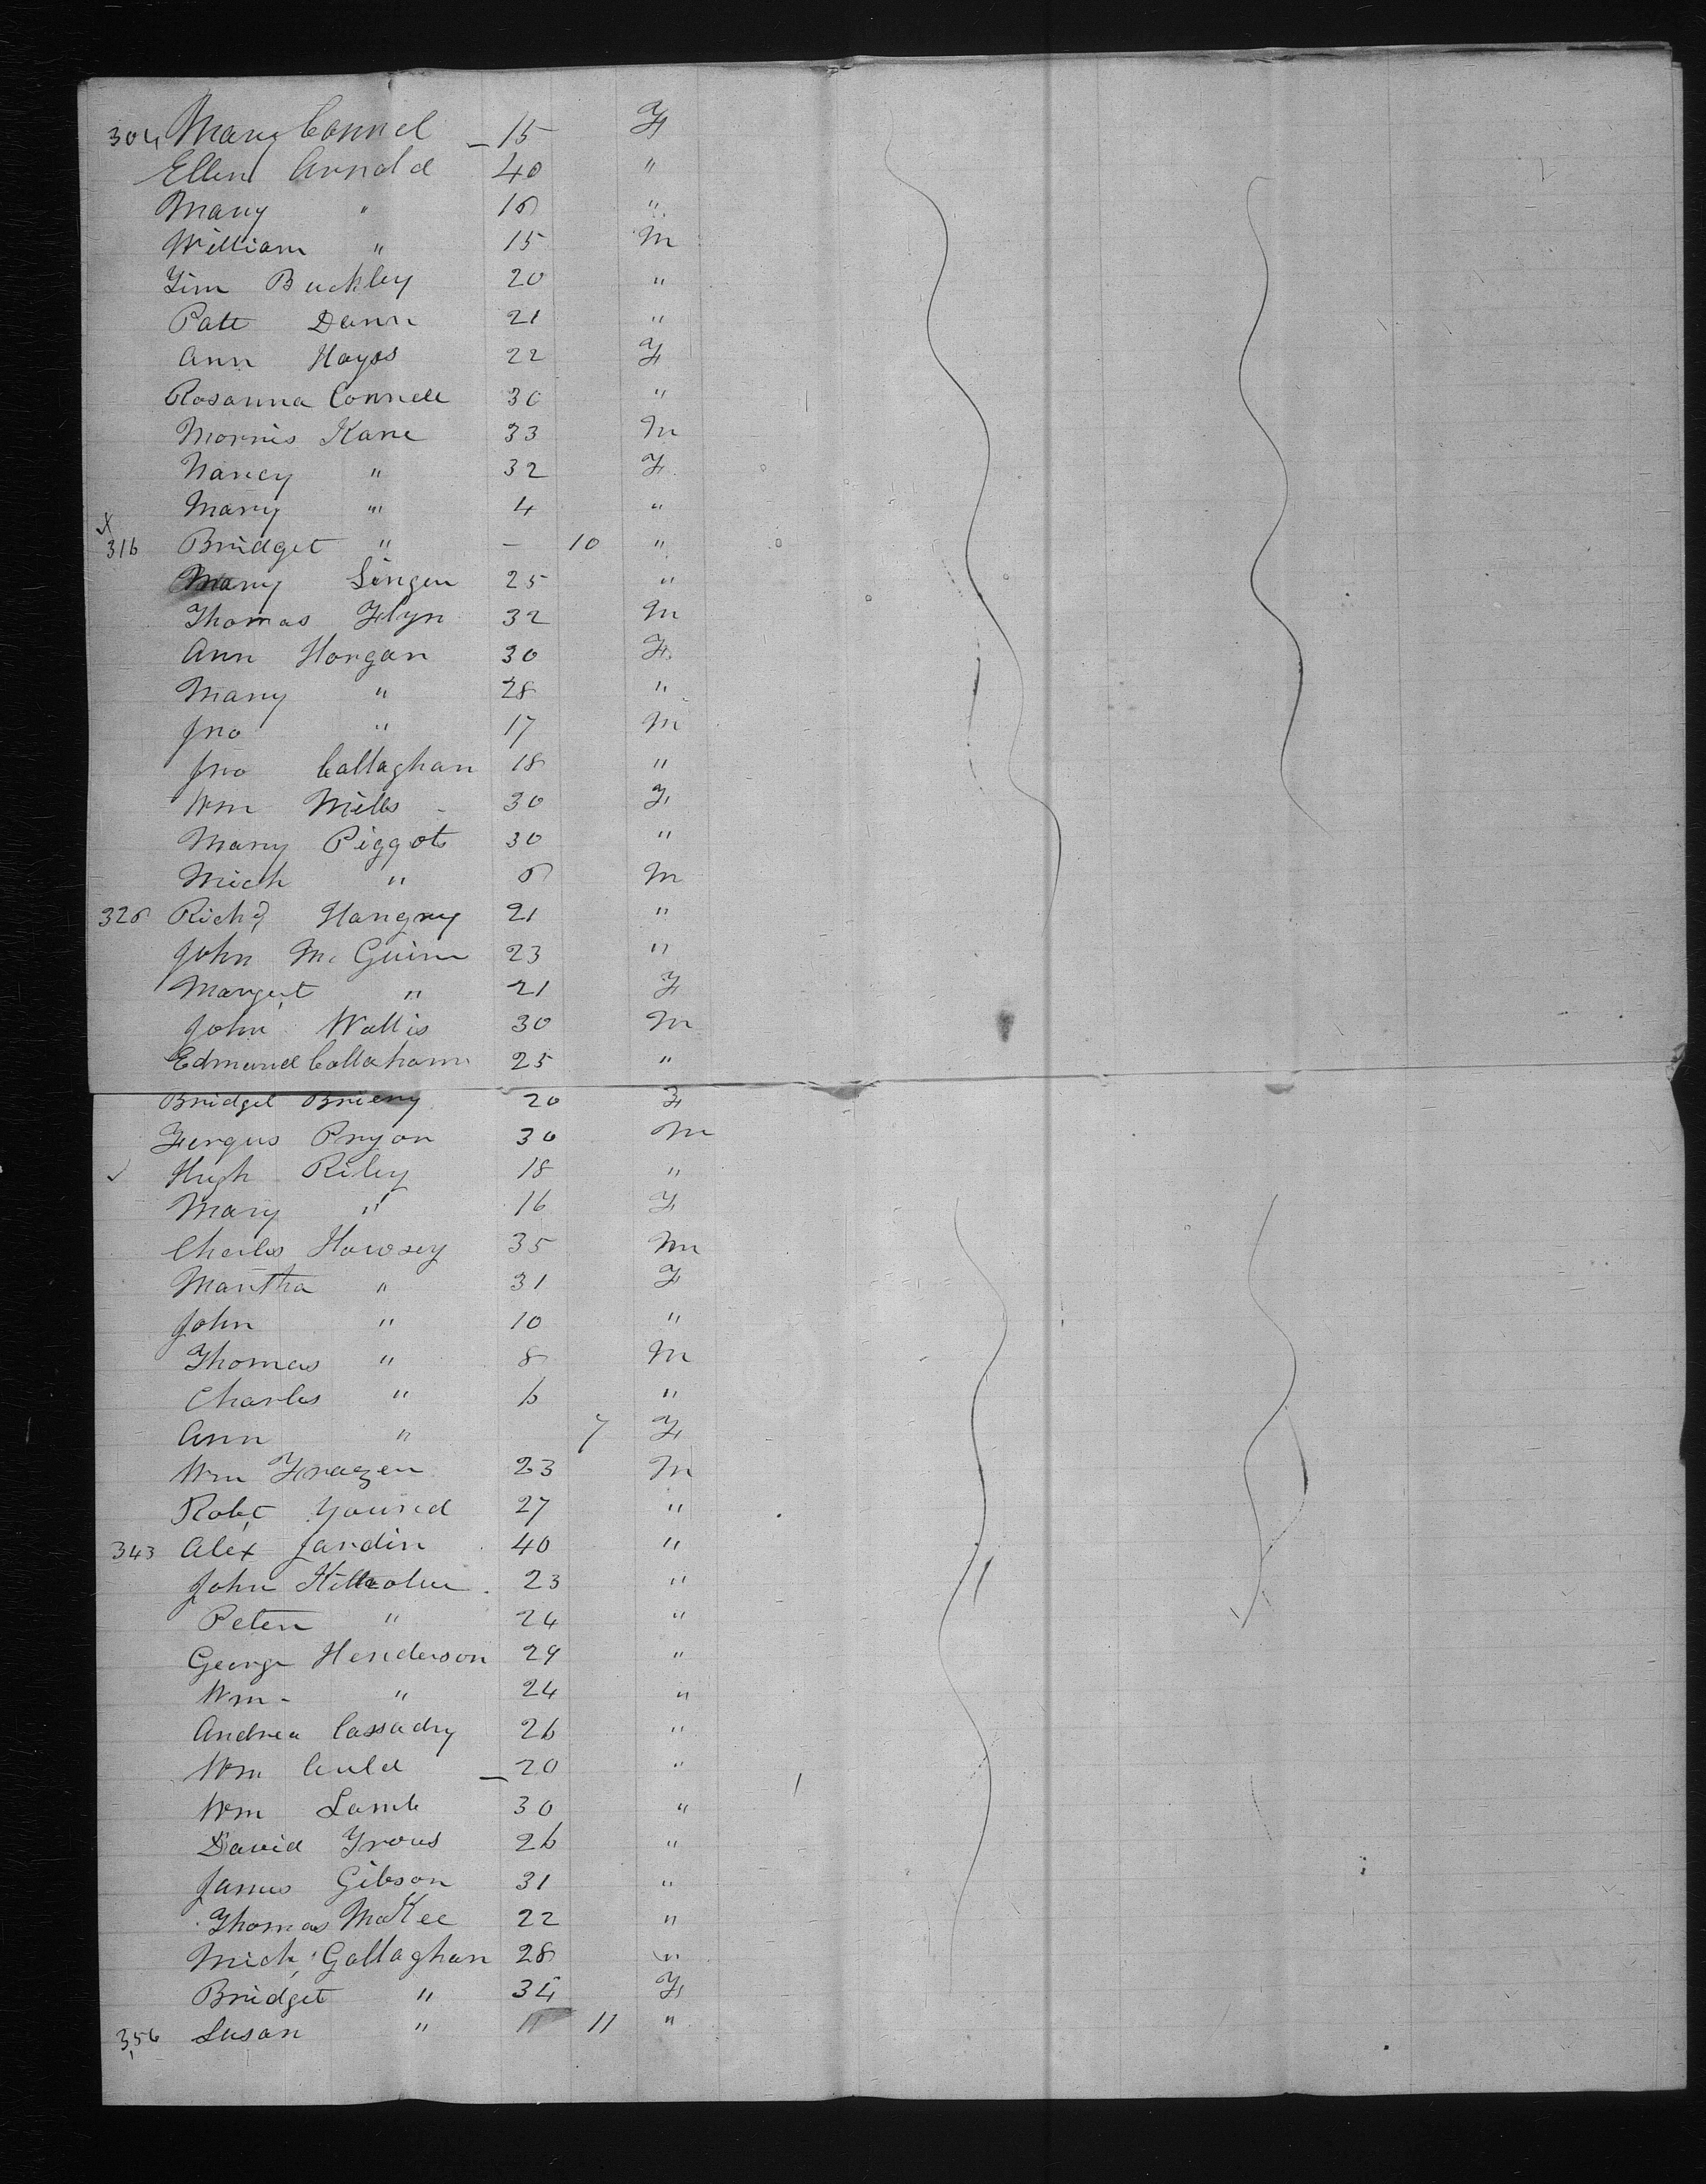 304 Mary Connel 15 F
Ellen Arnold 40 "
Mary " 18 "
William " 15 M
Jim Buckley 20 "
Patt Dann 21 "
Ann Hayes 22 F
Rosanna Connell 30 "
Morris Kane 33 M
Nancy " 32 F
Mary " 4 "
X
316 Bridget " — 10 "
Mary Singer 25 "
Thomas Flyn 32 M
Ann Horgan 30 F
Mary " 28 "
Jno " 17 M
Jno Callaghan 18 "
Wm Mills 30 F
Mary Piggot 30 "
Mich " 8 M
Richd 21 "
John Mc Guinn 23 "
Marget " 21 F
John Wallis 30 M
Edmund Callahann 25 "
Bridget Brieny 20 F
Fergus Pryor 30 M
✓ Hugh Riley 18 "
Mary " 16 F
Charles Howsey 35 M
Martha " 31 F
John " 10 "
Thomas " 8 M
Charles " 6 "
Ann " 7 F
Wm Frazer 23 M
Robt 27 "
343 Alex Jardin 40 "
John 23 "
Peter " 24 "
George Henderson 29 "
Wm - " 24 "
Andrew Cassady 26 "
Wm Auld 20 "
Wm Lamb 30 "
David 26 "
James Gibson 31 "
Thomas McKee 22 "
Mich Gallaghan 28 "
Bridget " 34 F
356 Susan " 11 "